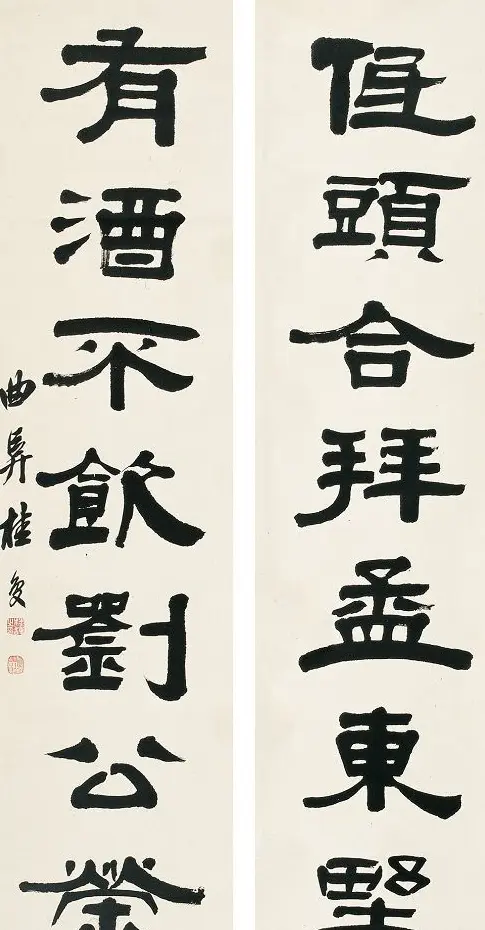 低頭合拜孟東野
有酒不飲劉公榮
曲阜桂馥